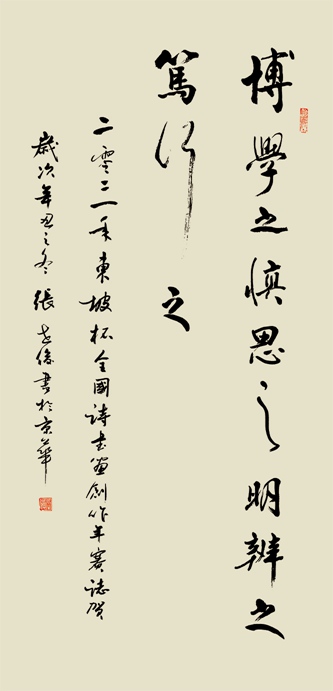 博學之慎思之明辨之
篤行之
二零二一年東坡杯全國詩書畫創作年賽誌賀
歲次辛丑之冬張俊書於京華